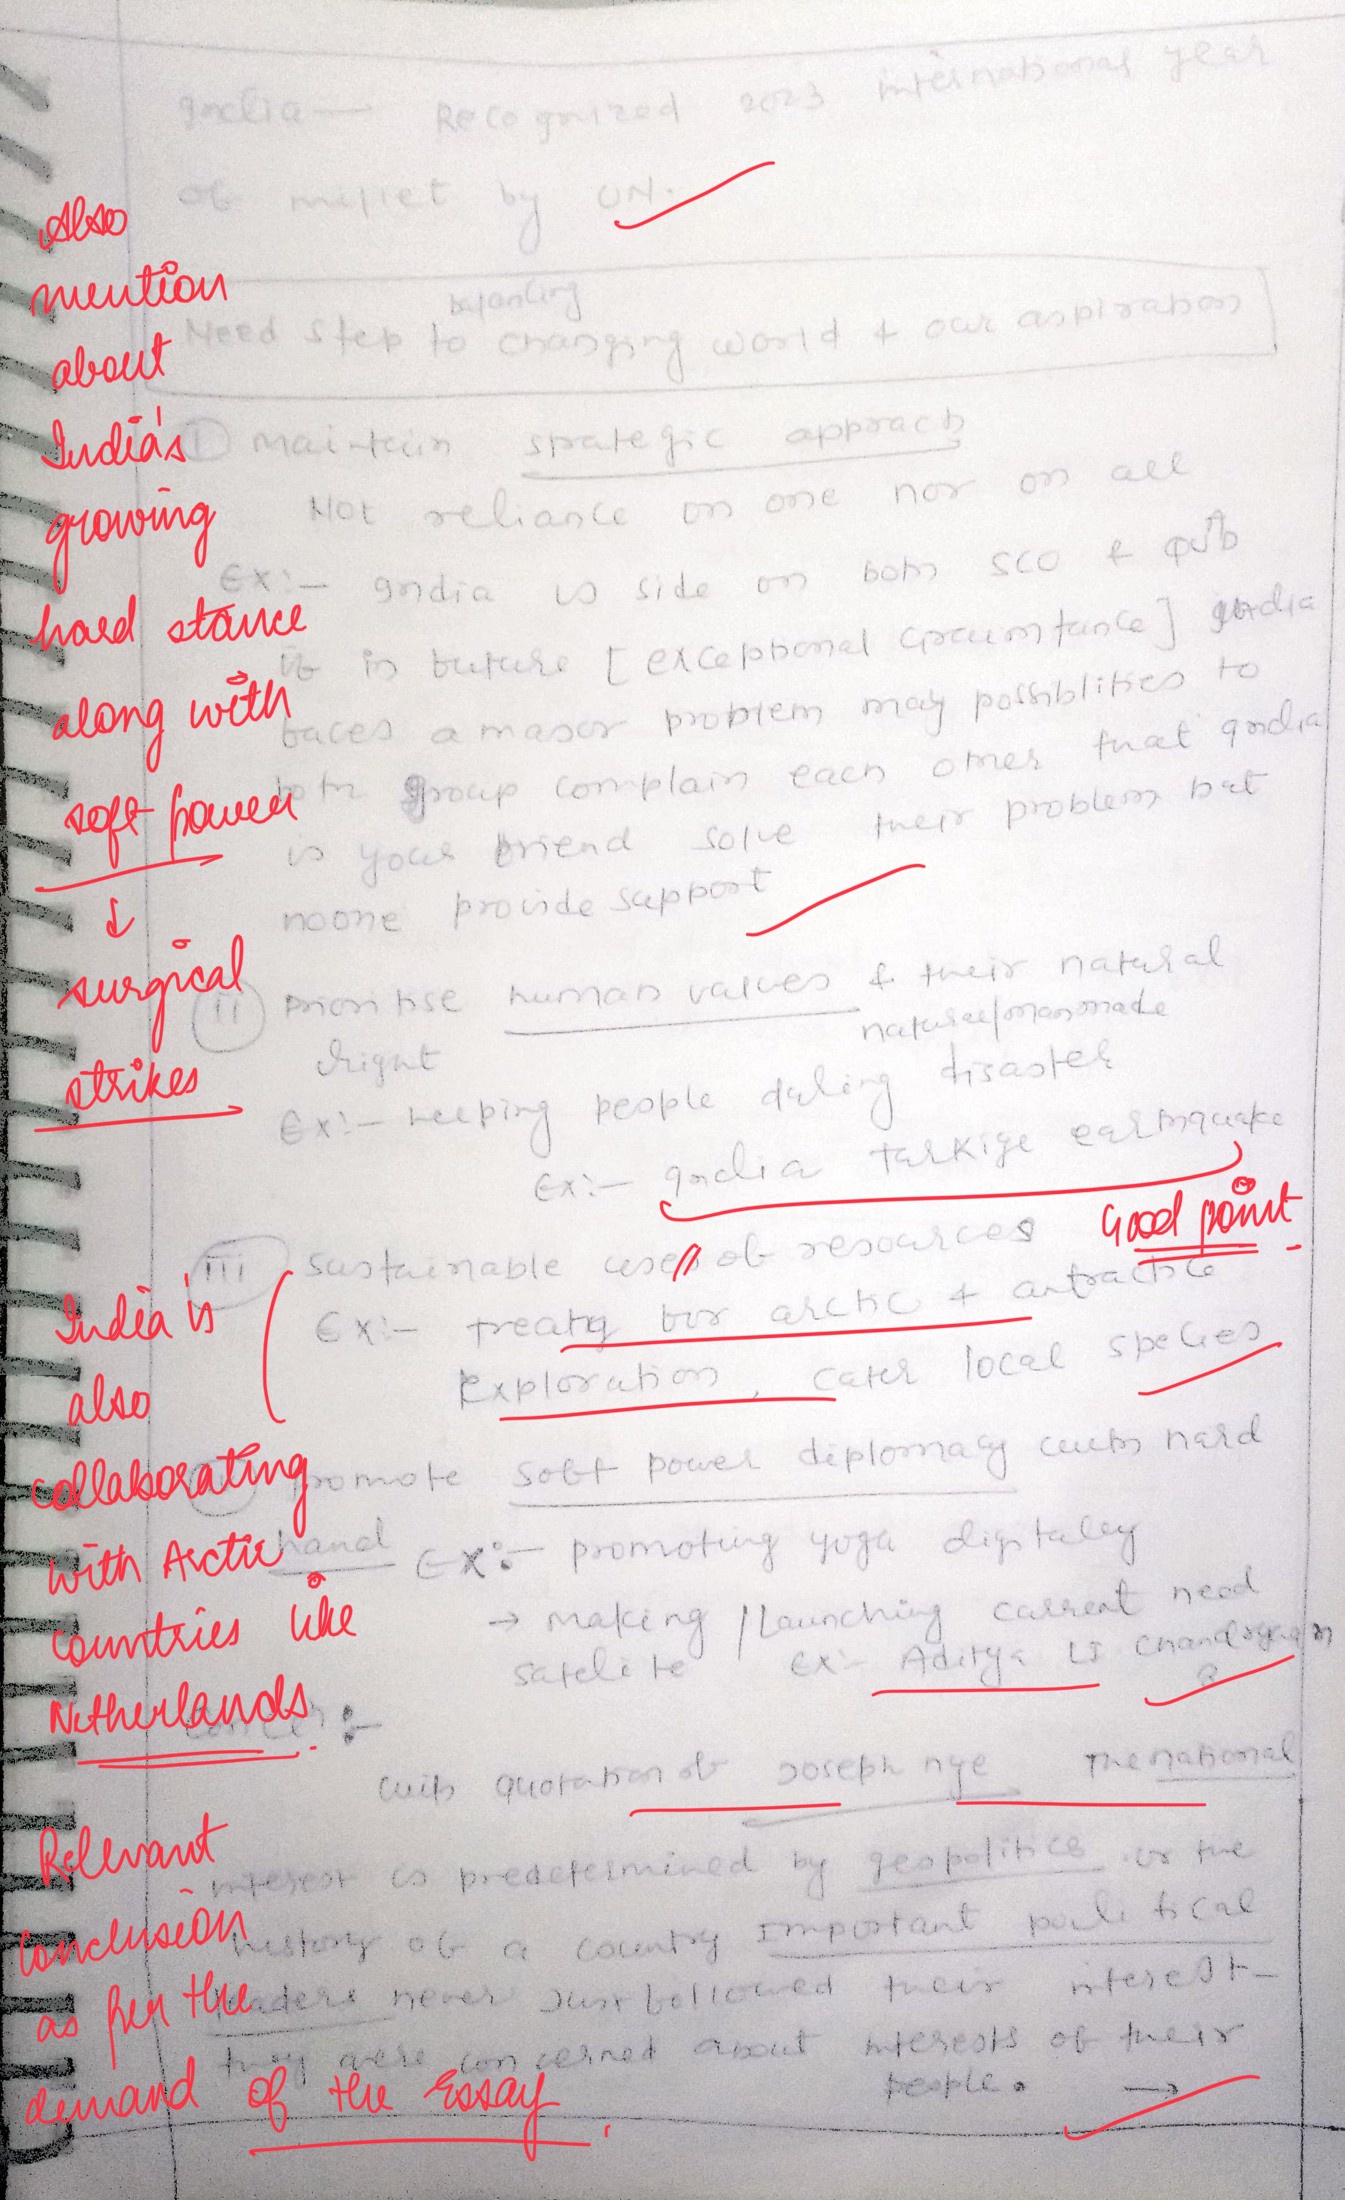 India — Recognized 2023 international year
of millet by UN.
balancing
Need step to changing world & our aspiration
Also
mention
about
India's
growing
hard stance
along with
soft power
↓
surgical
strikes
(i) Maintain strategic approach
Not reliance on one nor on all
Ex:- India is side on both SCO &
if in future [exceptional circumstance] India
faces a major problem may possiblities to
both group complain each other that India
is your friend solve their problem but
noone provide support
(ii) Prioritise human values & their natural
right
natural/manmade
Ex:- Helping people during disaster
Ex:- India Turkiye earthquake
Good point.
(iii) Sustainable uses of resources
Ex:- treaty for arctic & antractice
Exploration, cater local species
India is
also
collaborating
with Arctic
countries like
Netherlands.
promote soft power diplomacy with hard
hand Ex:- promoting yoga digitally
→ Making / Launching current need
satelite ex:- Aditya L1 Chandrayan
3
:-
with quotation of Joseph nye The national
interest is predetermined by geopolitics in the
history of a country important political
leaders never just followed their interest-
they were concerned about interests of their
people. →
Relevant
conclusion
as per the
demand of the Essay.